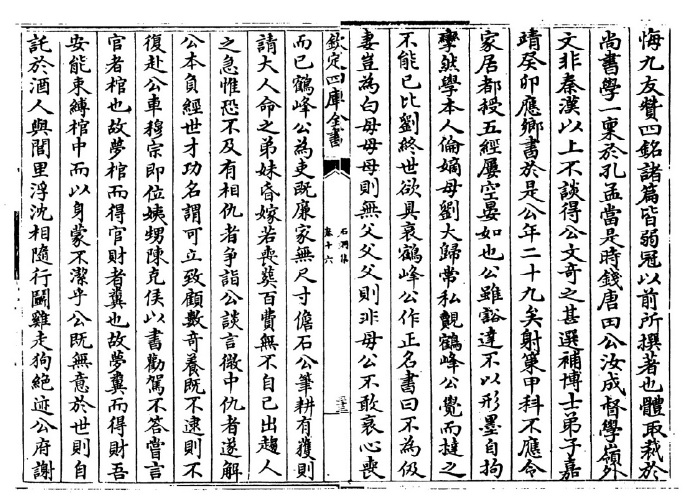 悔九友贊四銘諸篇皆弱冠以前所撰著也體取裁於
尚書學一稟於孔孟當是時錢唐田公汝成督學嶺外
文非秦漢以上不談得公文奇之甚選補博士弟子嘉
靖癸卯應鄉書於是公年二十九矣射策甲科不應令
家居都授五經屢空晏如也公雖豁達不以形墨自拘
攣然學本人倫嫡母劉大歸常私覿鶴峰公覺而撻之
不能已比劉終世欲具衰鶴峰公作正名書曰不為伋
妻豈為白母母母則無父父父則非母公不敢衰心喪
欽定四庫全書
石洞集
卷十六
而已鶴峰公為吏既廉家無尺寸儋石公筆耕有獲則
請大人命之弟妹昏嫁若喪葬百費無不自己出趨人
之急惟恐不及有相仇者爭詣公談言微中仇者遂解
公本負經世才功名謂可立致顧數奇養既不逮則不
復赴公車穆宗即位姨甥陳克侯以書勸駕不答嘗言
官者棺也故夢棺而得官財者糞也故夢糞而得財吾
安能束縛棺中而以身蒙不潔乎公既無意於世則自
託於酒人與閭里浮沈相隨行鬭雞走狗絕迹公府謝